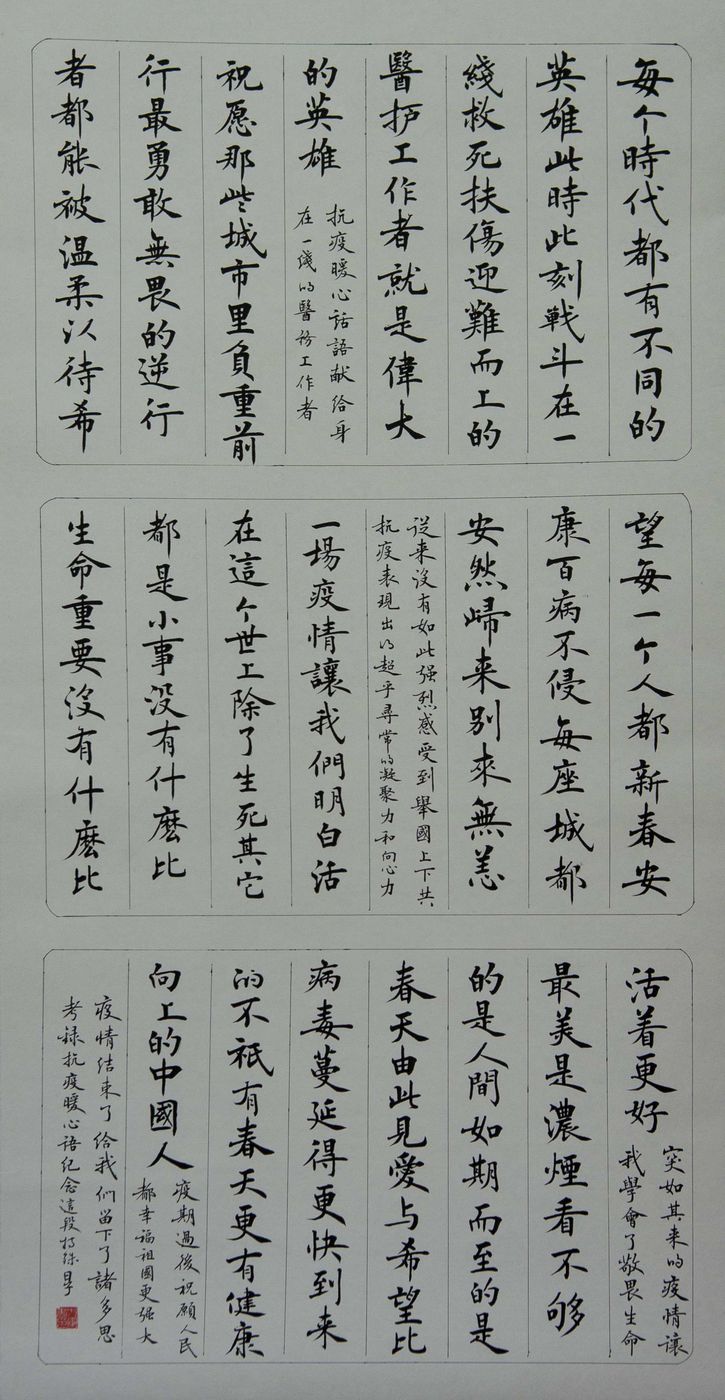 每个時代都有不同的
英雄此時此刻戰斗在一
綫救死扶傷迎難而上的
醫护工作者就是偉大
的英雄
抗疫暖心話語献给身
在一綫的醫務工作者
祝愿那些城市里負重前
行最勇敢無畏的逆行
者都能被温柔以待希
望每一个人都新春安
康百病不侵每座城都
安然歸来别來無恙
從来没有如此强烈感受到舉國上下共
抗疫表現出的超乎尋常的凝聚力和向心力
一場疫情讓我們明白活
在這个世上除了生死其它
都是小事没有什麽比
生命重要没有什麽比
活着更好
突如其来的疫情讓
我學會了敬畏生命
最美是濃煙看不够
的是人間如期而至的是
春天由此見愛与希望比
病毒蔓延得更快到来
的不祇有春天更有健康
向上的中國人
疫期過後祝願人民
都幸福祖國更强大
疫情结束了给我们留下了諸多思
考録抗疫暖心语纪念這段特殊日子